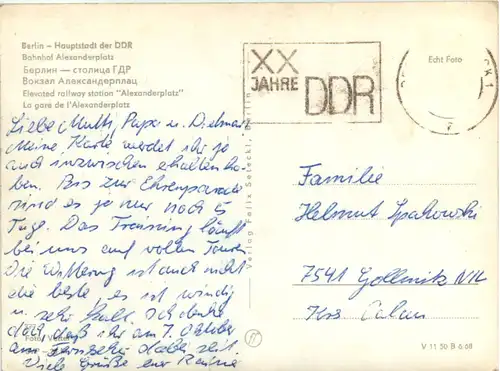 Berlin – Hauptstadt der DDR
Bahnhof Alexanderplatz
Берлин — столица ГДР
Вокзал Александерплац
Elevated railway station "Alexanderplatz"
La gare de l'Alexanderplatz
XX
JAHRE DDR
Echt Foto
Liebe Mutti, Papa u. Dietmar
Meine Karte werdet ihr ja
auch inzwischen erhalten ha-
ben. Bis zur Ehrenparade
sind es ja nur noch 5
Tage. Das Training läuft
bei uns auf vollen Touren.
Die Witterung ist auch nicht
die beste, es ist windig
u. sehr kalt. Ich denke
doch, daß ihr am 7. Oktober
am Fernseher dabei seit.
Viele Grüße euer
Verlag Felix Setecki, Berlin
Familie
Helmut
7541 Gollmitz NL
Krs. Calau
V 11 50 B 6 68